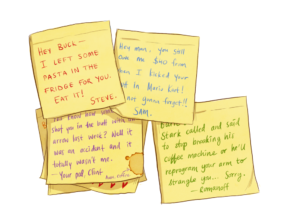 HEY BUCK —
I LEFT SOME
PASTA IN THE
FRIDGE FOR YOU.
EAT IT!
STEVE.
Hey man, you still
me $100 from
I kicked your
In Mario Kart!
not gonna forget!!
SAM.
shot you in the butt with an
arrow last week? Well it
was an accident and it
totally wasn't me.
Your pal, Clint
Stark called and said
to stop breaking his
coffee machine or he'll
reprogram your arm to
strangle you... Sorry.
- Romanoff